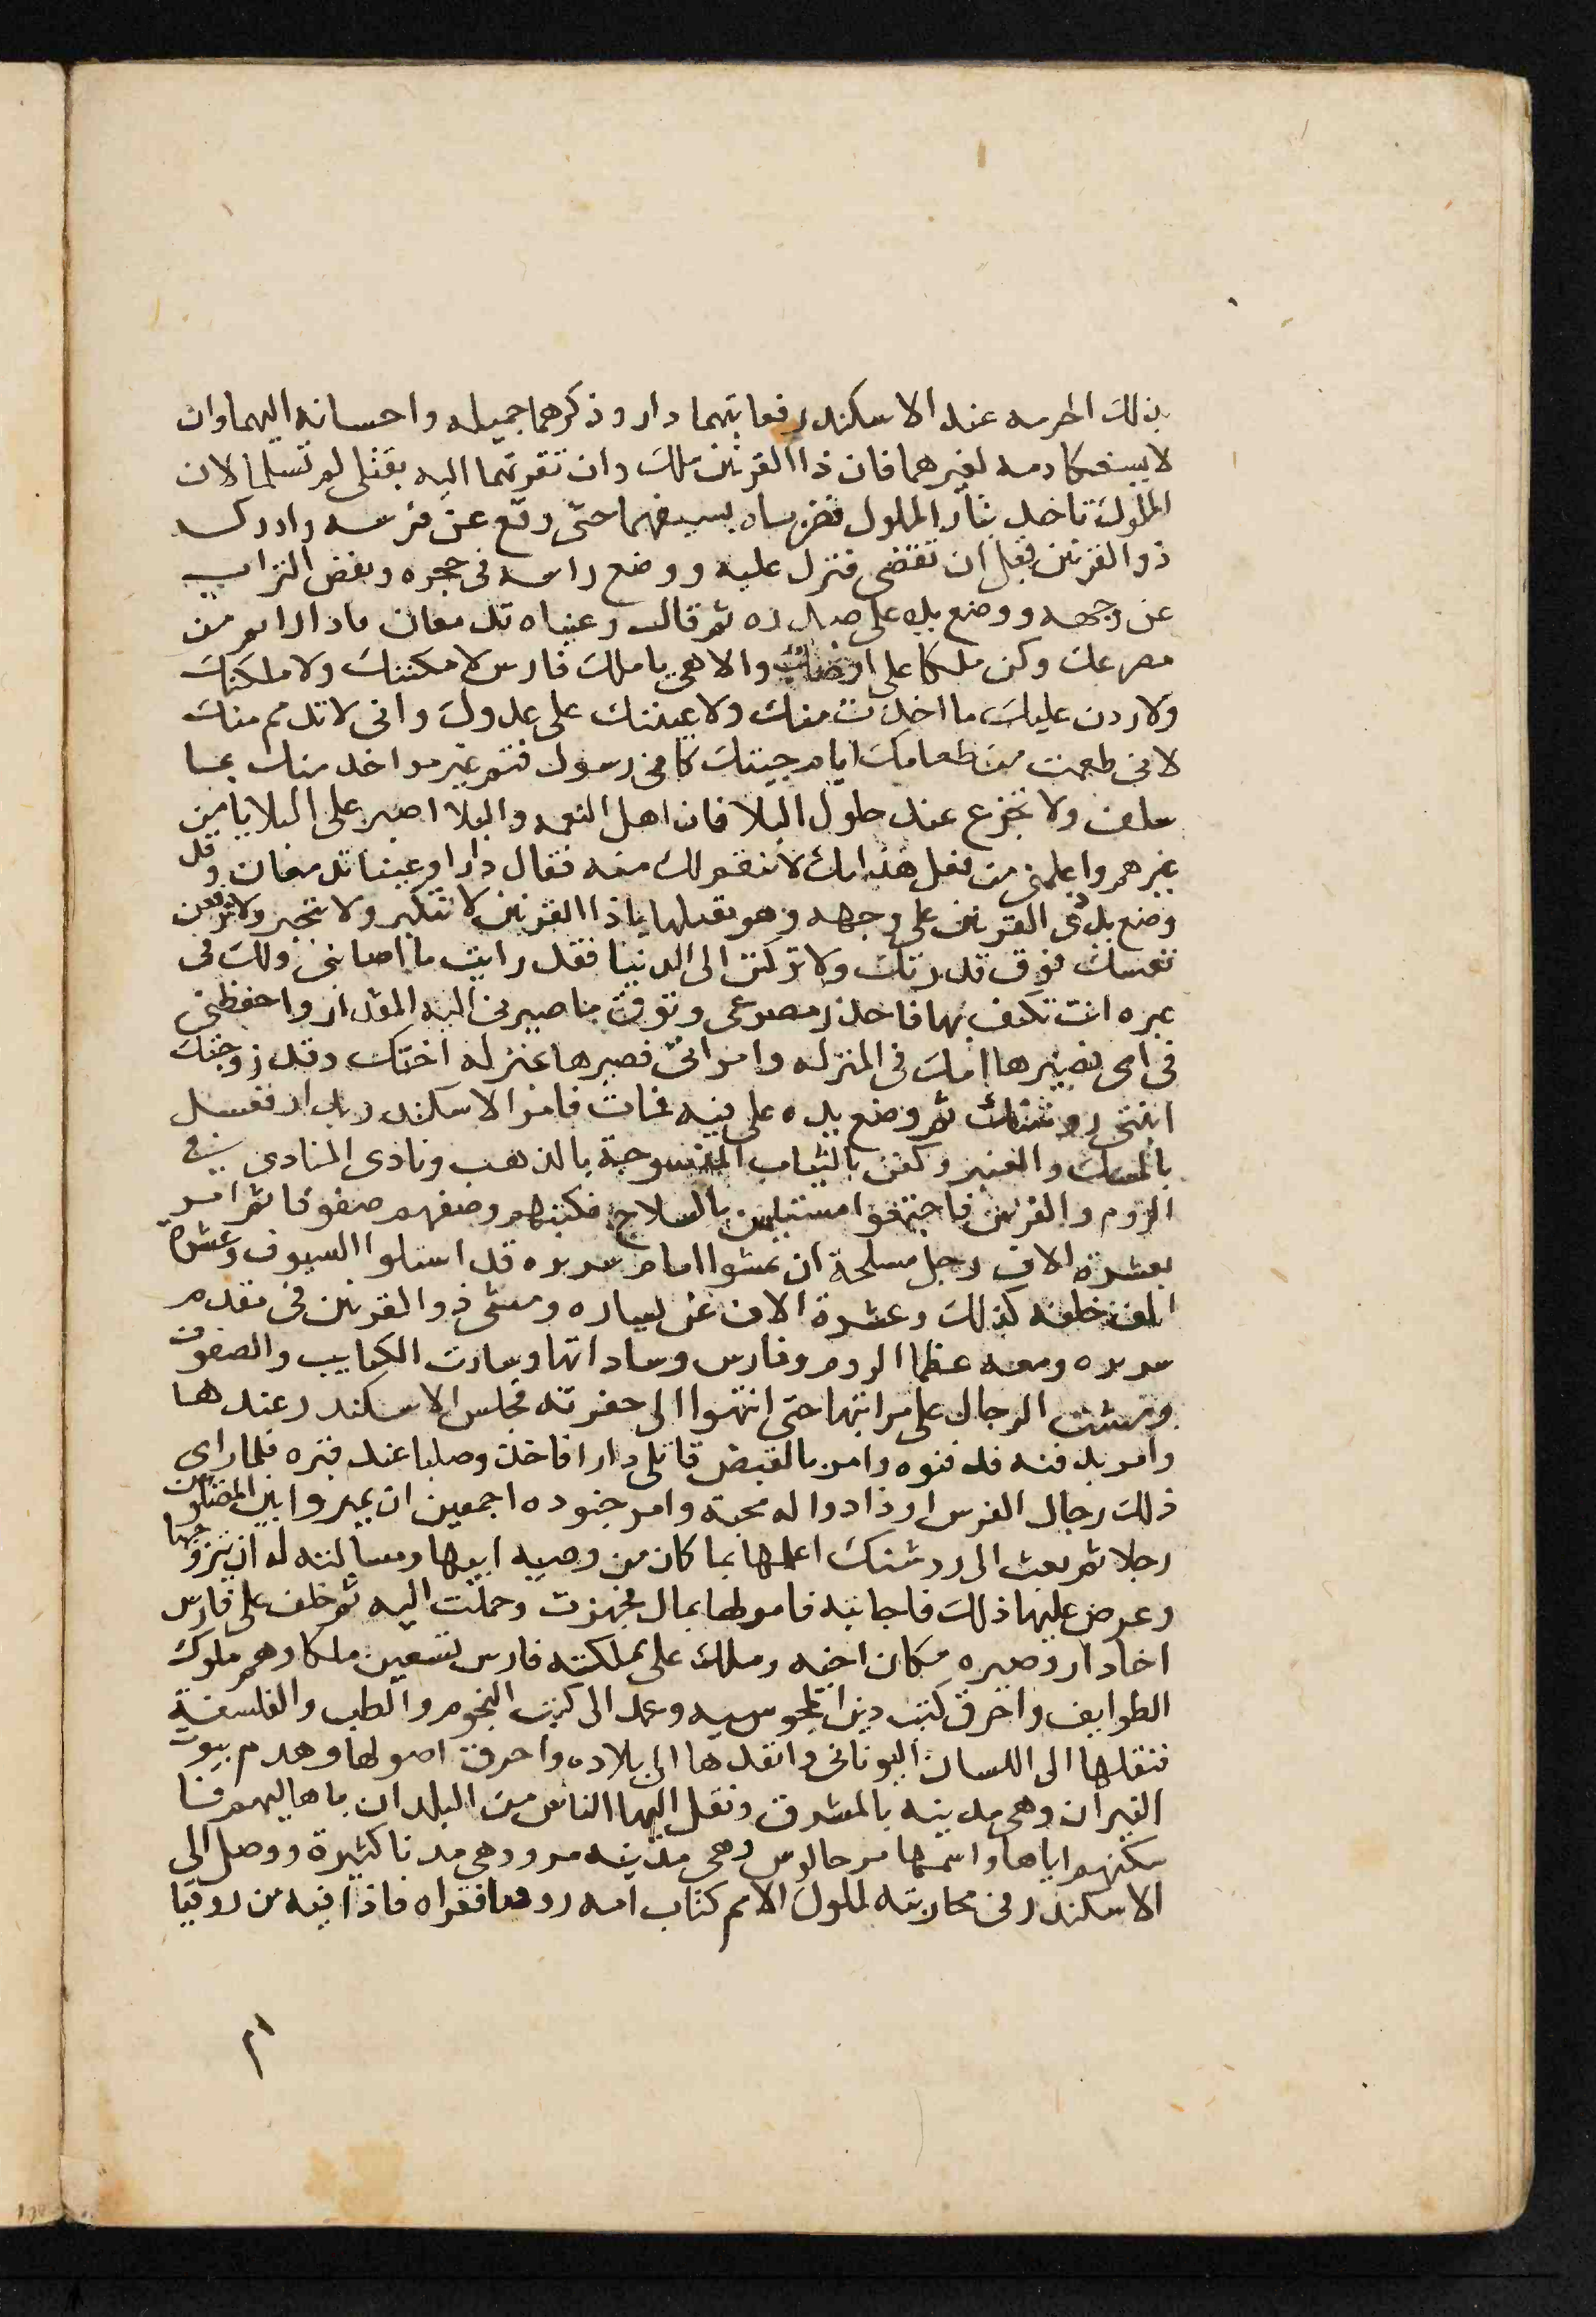 بذلك الحرمه عند الاسكندر فعاتبهما دارو ذكرهما جميله واحسانه اليهما وان
لا يسفكا دمه لغيرهما فان ذا القرنين ملك وان تقربتما اليه بقتلى لم تسلما لان
الملوك تاخد بثار الملوك فضرباه بسيفهما حتى وقع عن فرسه وادركه
ذو القرنين قبل ان تقضى فنزل عليه ووضع راسه فى حجره ونفض التراب
عن وجهه ووضع يده على صدره ثم قال وعيناه تدمعان يادارا قم من
مصرعك وكن ملكا على ارضك والاهى يا ملك فارس لامكننك ولا ملكنك
ولاردن عليك ما اخدت منك ولاعيننك على عدوك وانى لا تدمم منك
لانى طعمت من طعامك ايام جيتك كانى رسول فقم غير مواخد منك بما
سلف ولا تجزع عند حلول البلا فان اهل النعمه والبلا اصبر على البلايا من
غيرهم واعلمنى من فعل هذا بك لانتقم لك منه فقال دارا وعيناه تدمعان وقد
وضع يد ذى القرنين على وجهه وهو يقبلها ياذا القرنين لا تتكبر ولا تتجبر ولا ترفعن
نفسك فوق قدرتك ولا تركن الى الدنيا فقد رايت ما اصابنى ولك فى
عبره انت تكتف بها فاحذر مصرعى وتوق ما صيرنى اليه المقدار واحفظنى
فى امى فصيرها امك فى المنزله وامراتى فصيرها بمنزله اختك وقد زوجتك
ابنتى روشنك ثم وضع يده على فيه فمات فامر الاسكندر بدارا فغسل
بالمسك والعنبر وكفن بالثياب المنسوجة بالذهب ونادى المنادى فى
الروم والفرس فاجتمعوا متلبسين بالسلاح فكتبهم وصفهم صفوفا ثم امر
بعشرة الاف رجل مسلحة ان يمشوا امام سريره قد استلوا السيوف وعشرة
الف خلفه كذلك وعشرة الاف عن يساره ومشى ذو القرنين فى مقدم
سريره ومعه عظما الروم وفارس وساداتها وسارت الكتايب والصفوف
ومشت الرجال على مراتبها حتى انتهوا الى حفرته فجلس الاسكندر عندها
وامر بدفنه فدفنوه وامر بالقبض قاتلى دارا فاخدت وصلبا عند قبره فلما راى
ذلك رجال الفرس ازدادوا له محبة وامر جنوده اجمعين ان يميزوا بين المصلوبين
رجلا ثم بعث الى روشنك اعلمها بما كان من وصيه ابيها ومسالته له ان يتزوجها
وعرض عليها ذلك فاجابته فامر لها بمال فجهزت وحملت اليه ثم خلف على فارس
اخا دارا وصيره مكان اخيه وملك على مملكته فارس تسعين ملكا وهم ملوك
الطوايف واحرق كتب دين المجوسيه وعمد الى كتب النجوم والطب والفلسفة
فنقلها الى اللسان اليونانى وانفدها الى بلاده واحرق اصولها وهدم بيوت
النيران وهى مدينه بالمشرق ونقل اليها الناس من البلدان باهاليهم فا
سكنهم اياها واسمها مرحالوس وهى مدينه مرو وهى مدنا كثيرة ووصل الى
الاسكندر فى محاربته لملوك الامم كتاب امه روفيا فقراه فاذا فيه من روفيا